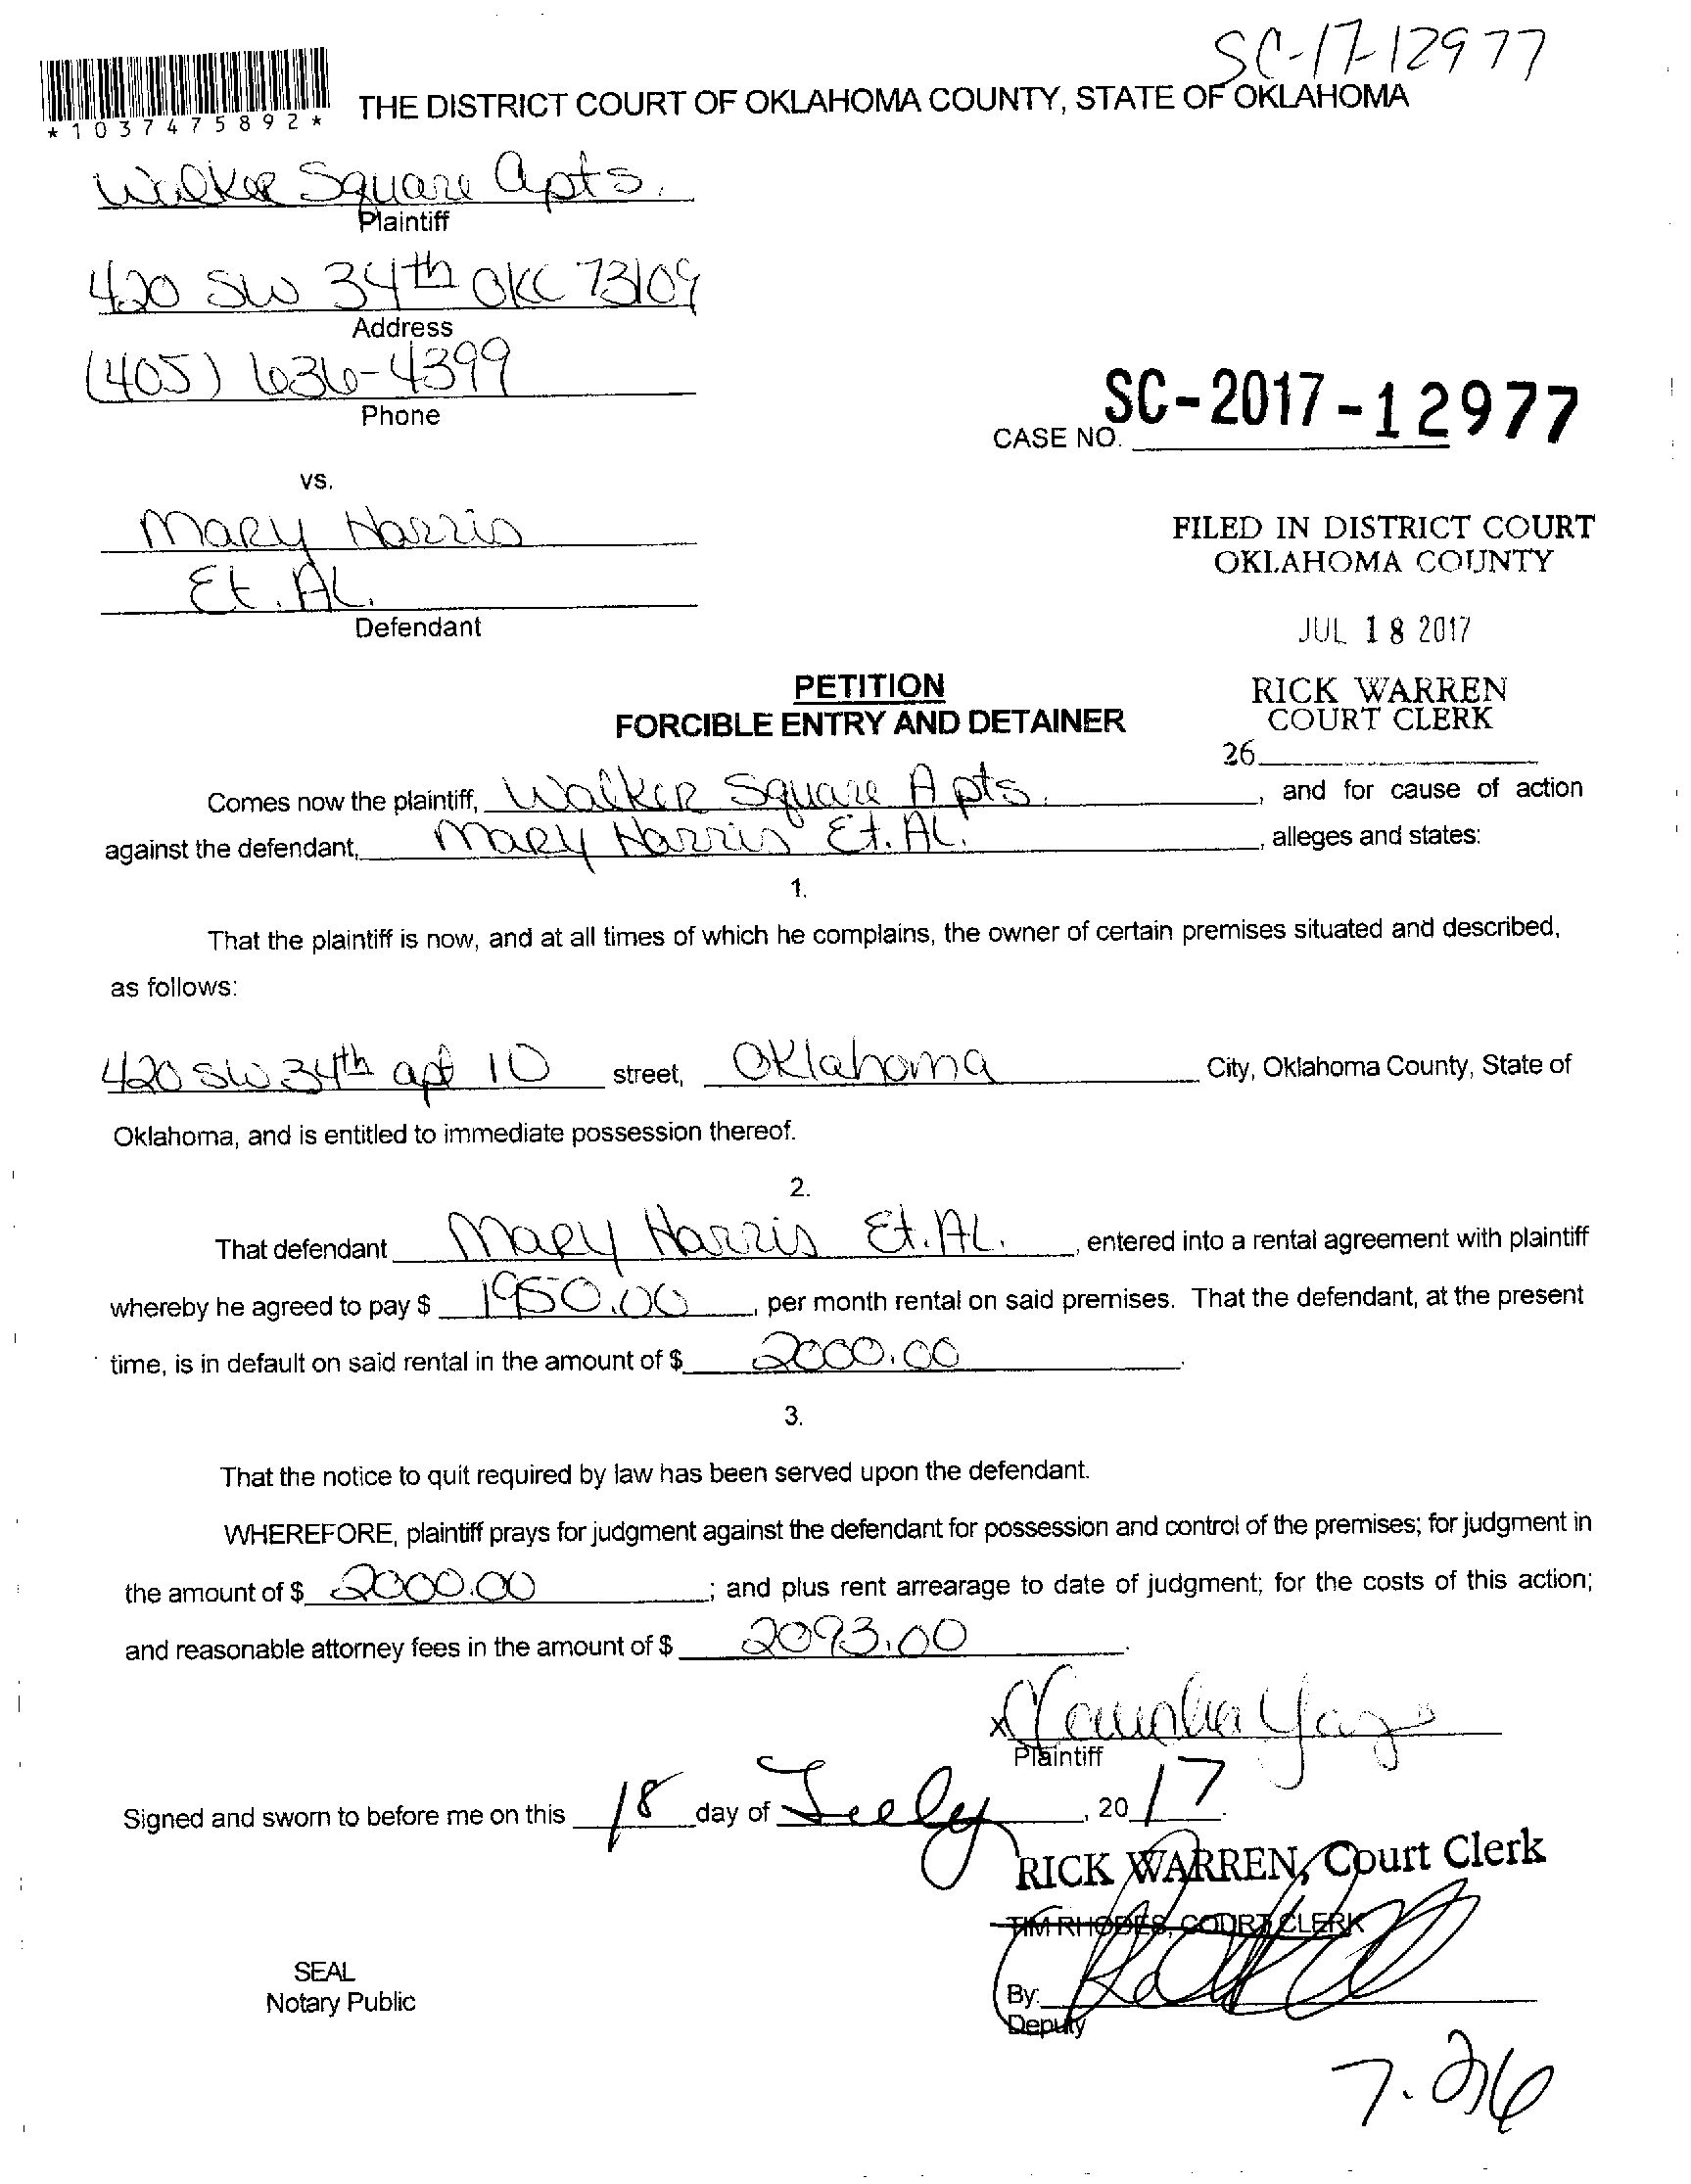 SC-17-12977
*1037475892*
THE DISTRICT COURT OF OKLAHOMA COUNTY, STATE OF OKLAHOMA
Walker Square Apts.
Plaintiff
420 SW 34th OKC 73109
Address
(405) 636-4399
Phone
SC-2017-12977
CASE NO.
vs.
Mary Harris
Et. AL.
Defendant
FILED IN DISTRICT COURT
OKLAHOMA COUNTY
JUL 18 2017
RICK WARREN
COURT CLERK
26
PETITION
FORCIBLE ENTRY AND DETAINER
Comes now the plaintiff, Walker Square Apts., and for cause of action
against the defendant, Mary Harris Et. AL., alleges and states:
1.
That the plaintiff is now, and at all times of which he complains, the owner of certain premises situated and described,
as follows:
420 SW 34th apt 10 street, Oklahoma City, Oklahoma County, State of
Oklahoma, and is entitled to immediate possession thereof.
2.
That defendant Mary Harris Et. AL., entered into a rental agreement with plaintiff
whereby he agreed to pay $ 1950.00, per month rental on said premises. That the defendant, at the present
time, is in default on said rental in the amount of $ 2000.00.
3.
That the notice to quit required by law has been served upon the defendant.
WHEREFORE, plaintiff prays for judgment against the defendant for possession and control of the premises; for judgment in
the amount of $ 2000.00; and plus rent arrearage to date of judgment; for the costs of this action;
and reasonable attorney fees in the amount of $ 2093.00.
x
Plaintiff
Signed and sworn to before me on this 18 day of July, 2017.
RICK WARREN, Court Clerk
TIM RHODES, COURT CLERK
SEAL
Notary Public
By:
Deputy
7.26